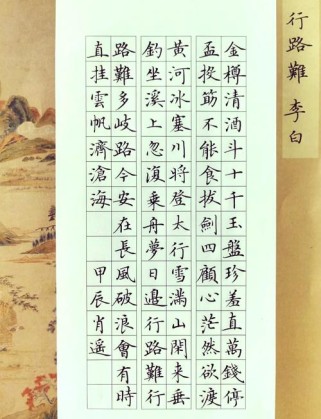 行路難 李白
金樽清酒斗十千玉盤珍羞直萬錢停
盃投筯不能食拔劍四顧心茫然欲渡
黃河冰塞川將登太行雪滿山閑来垂
釣坐溪上忽復乘舟夢日邊行路難行
路難多岐路今安在長風破浪會有時
直挂雲帆濟滄海 甲辰肖遥